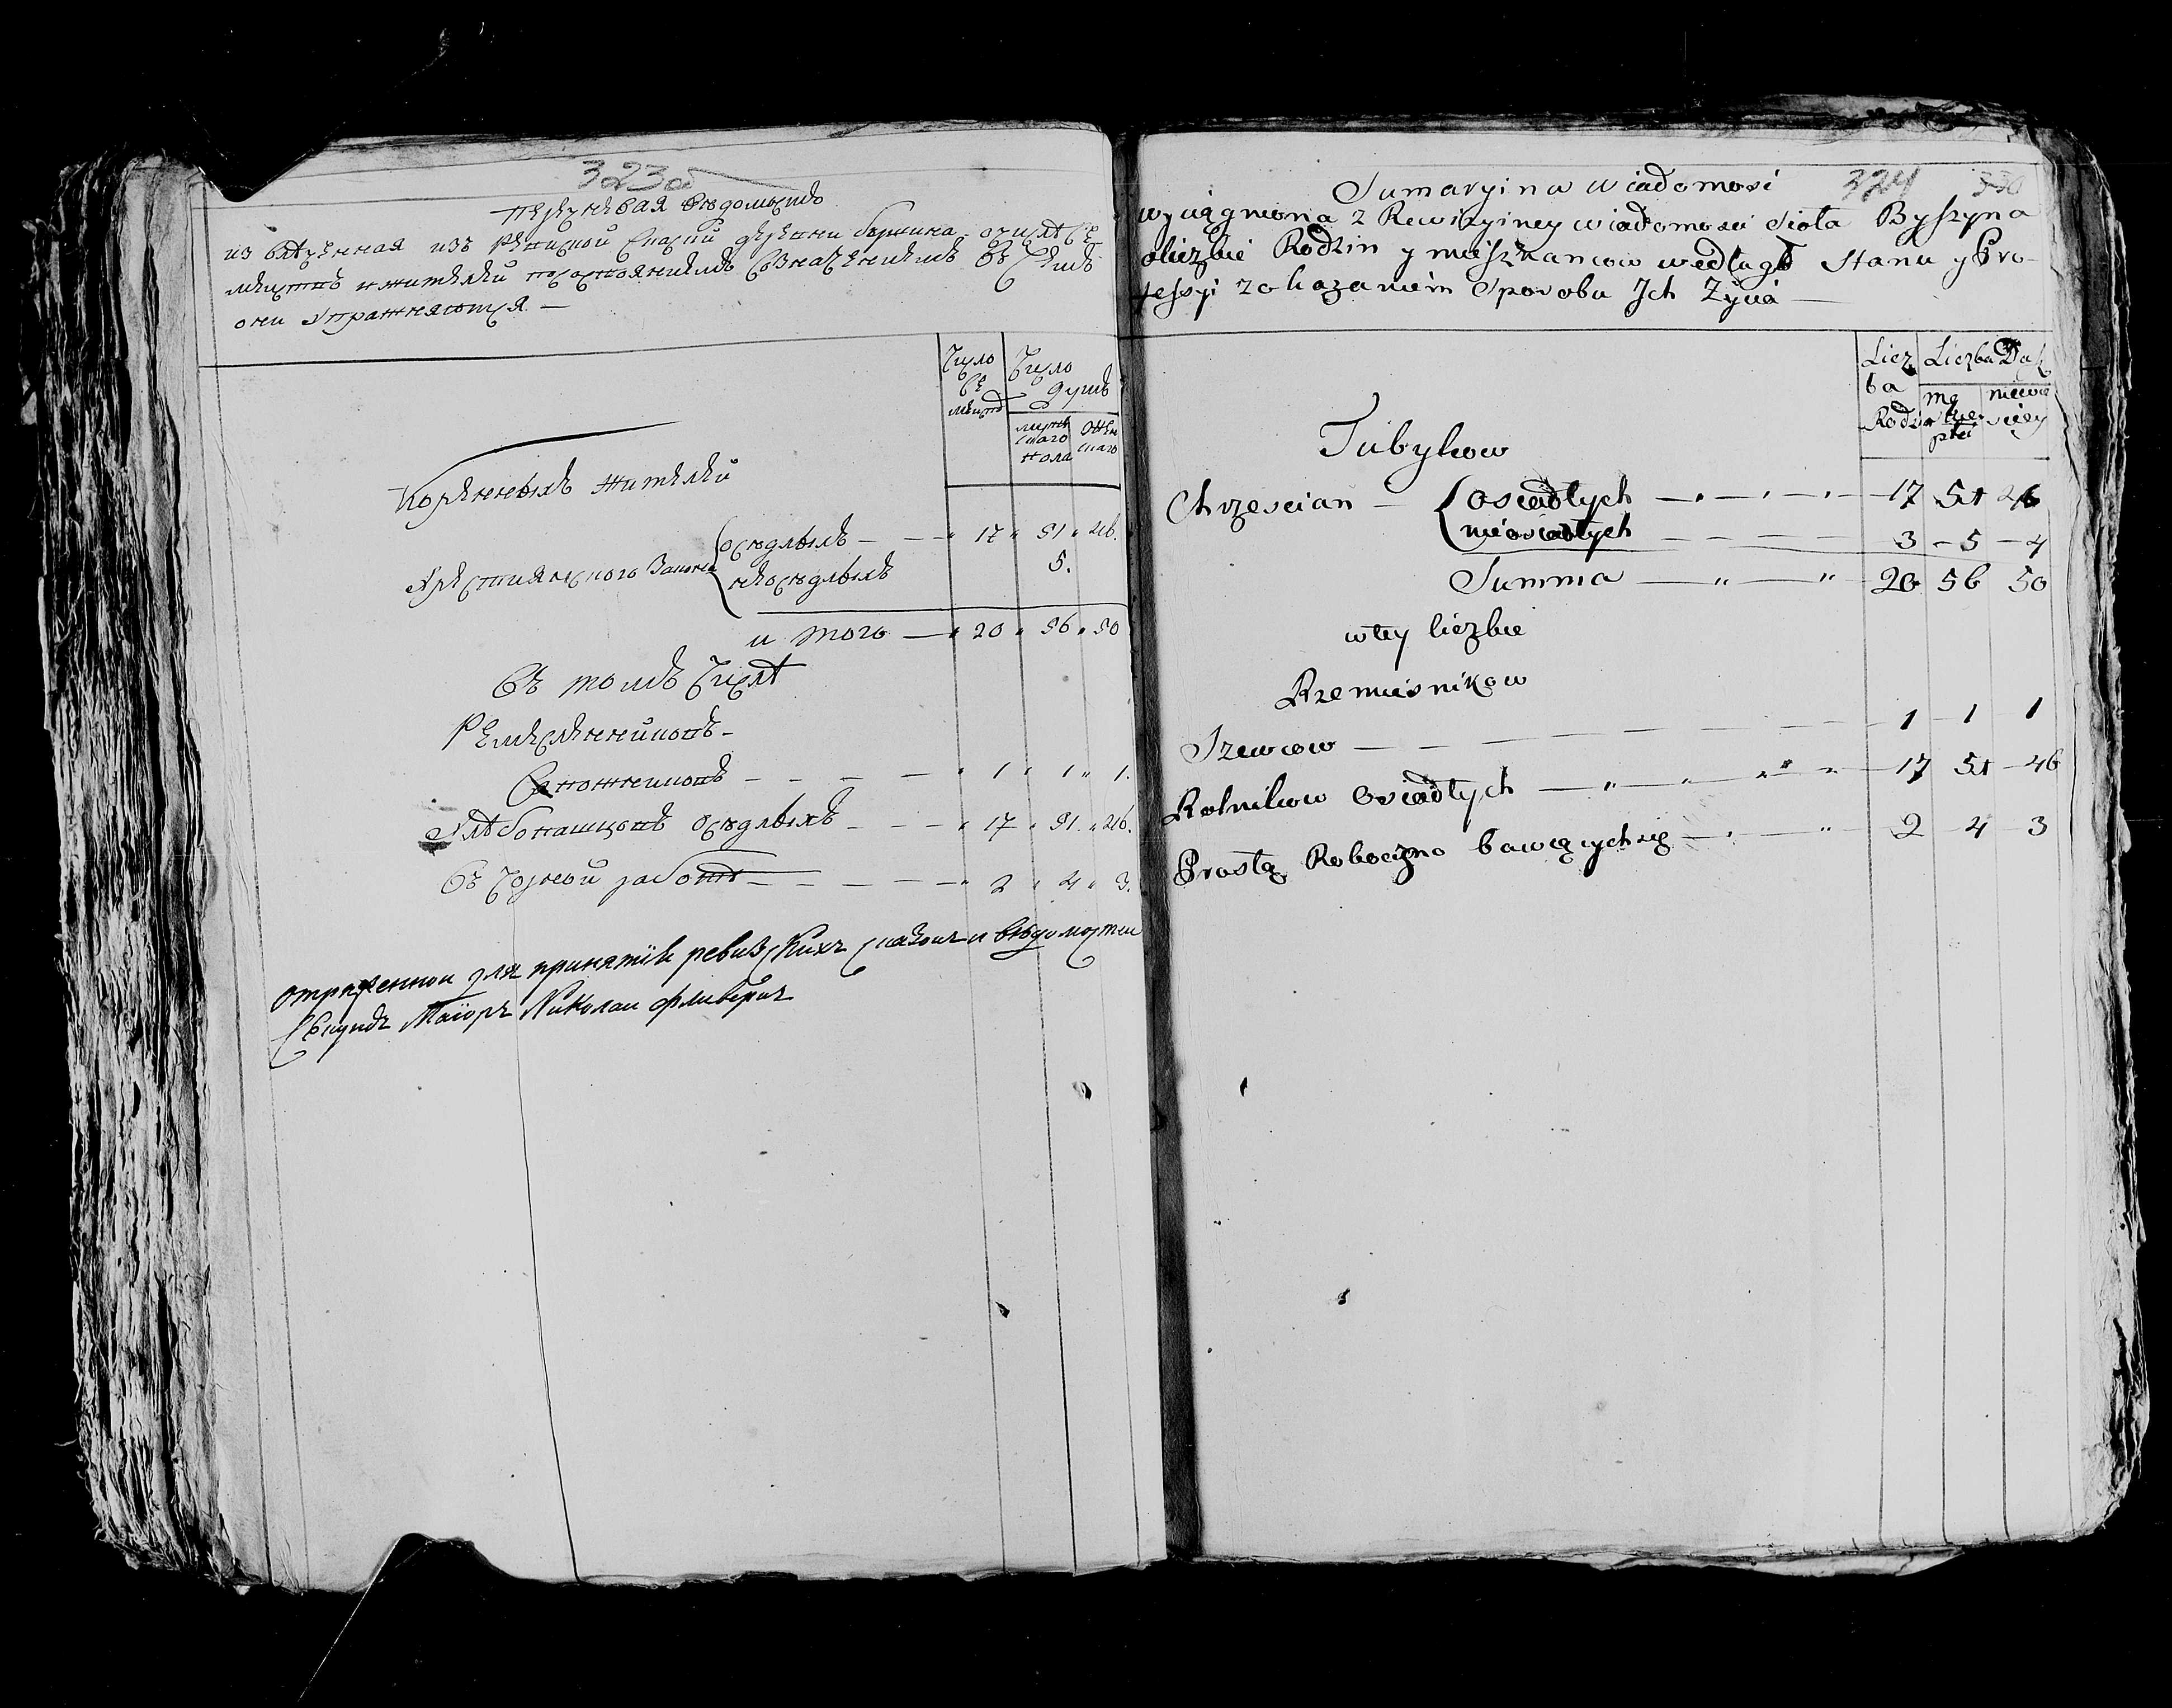 323 об
Перечневая ведомость
из влеченная изъ ревиской скаски деревни Бышина о числе се
мействъ и жителей по состояниямъ со значениемъ въ чемъ
они упражняются —
Число се мействъ
Число душъ
мужескаго пола
женскаго
Коренныхъ жителей
Християнскаго закона { оседлыхъ — 17 „ 51 „ 46.
неоседлыхъ 5.
и того — „ 20 „ 56 „ 50
Въ томъ числе
Ремесленниковъ —
Сапожниковъ — „ 1 „ 1 „ 1.
Хлебопашцовъ оседлыхъ — „ 17 „ 51 „ 46.
Въ черной работе — „ 2 „ 4 „ 3.
отряженной для принятия ревизскихъ сказокъ и ведомостей
Секундъ Маиоръ Николаи
324
Sumaryina wiadomosć
wyciągniona z Rewizyiney wiadomosci Sioła Byszyna
oliczbie Rodzin y mieszkancow według Stanu y Pro-
fessyi zokazaniem Sposobu Jch Zycia —
Licz ba Rodzin
Liczba Dusz
mę skiey płci
niewie sciey
Tubylcow
Chrzescian — { osiadłych — 17 51 46
nieosiadłych — 3 – 5 – 4
Summa — „ — „ — 20 56 50
wtey liczbie
Rzemiesnikow
Szewcow — 1 – 1 1
Rolnikow Osiadłych — „ — „ — 17 51 – 46
Prostą Robocizno bawiących się — „ — 2 – 4 – 3